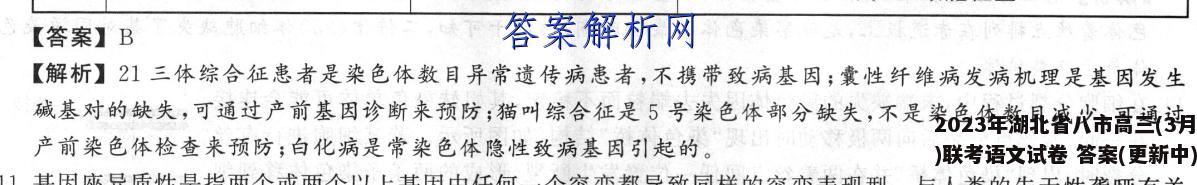 答案解析网
【答案】B
【解析】21三体综合征患者是染色体数目异常遗传病患者,不携带致病基因;囊性纤维病发病机理是基因发生
碱基对的缺失,可通过产前基因诊断来预防;猫叫综合征是5号染色体部分缺失,不是染色体数目减少,可通过
产前染色体检查来预防;白化病是常染色体隐性致病基因引起的。
2023年湖北省八市高三(3月
)联考语文试卷 答案(更新中)
11 基因座异质性是指两个或两个以上基因中任何一个突变都导致同样的突变表现型